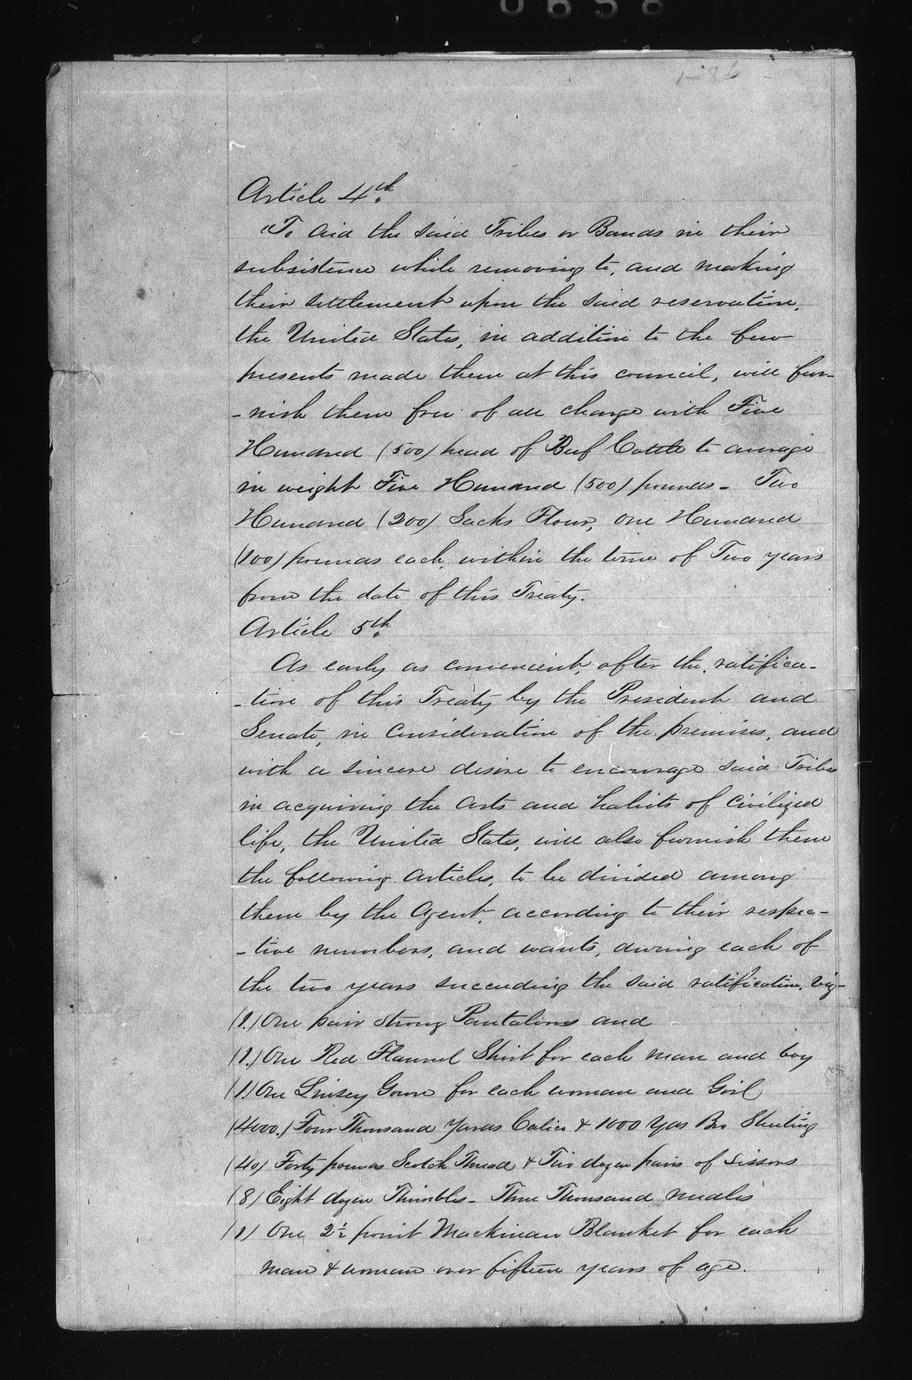 0658
1-86
Article 4th.
To aid the said Tribes or Bands in their
subsistence while removing to, and making
their settlement upon the said reservation,
the United States, in addition to the few
presents made them at this council, will fur-
-nish them free of all charge with Five
Hundred (500) head of Beef Cattle to average
in weight Five Hundred (500) pounds - Two
Hundred (200) Sacks Flour, one Hundred
(100) pounds each, within the time of Two years
from the date of this Treaty.
Article 5th.
As early as convenient, after the ratifica-
-tion of this Treaty by the President and
Senate, in consideration of the premises, and
with a sincere desire to encourage said Tribes
in acquiring the arts and habits of civilized
life, the United States, will also furnish them
the following articles, to be divided among
them by the Agent, according to their respec-
-tive numbers, and wants, during each of
the two years succeeding the said ratification, viz-
(1.) One pair strong Pantaloons and
(1.) One Red Flannel Shirt for each man and boy
(1) One Linsey Gown for each woman and Girl
(4000.) Four Thousand Yards Calico & 1000 Yds Bro Sheeting
(40) Forty pounds Scotch Thread & Two dozen pairs of Sissors
(8) Eight dozen Thimbles - Three Thousand needles
(1) One 2½ point Mackinaw Blanket for each
man & woman over fifteen years of age.